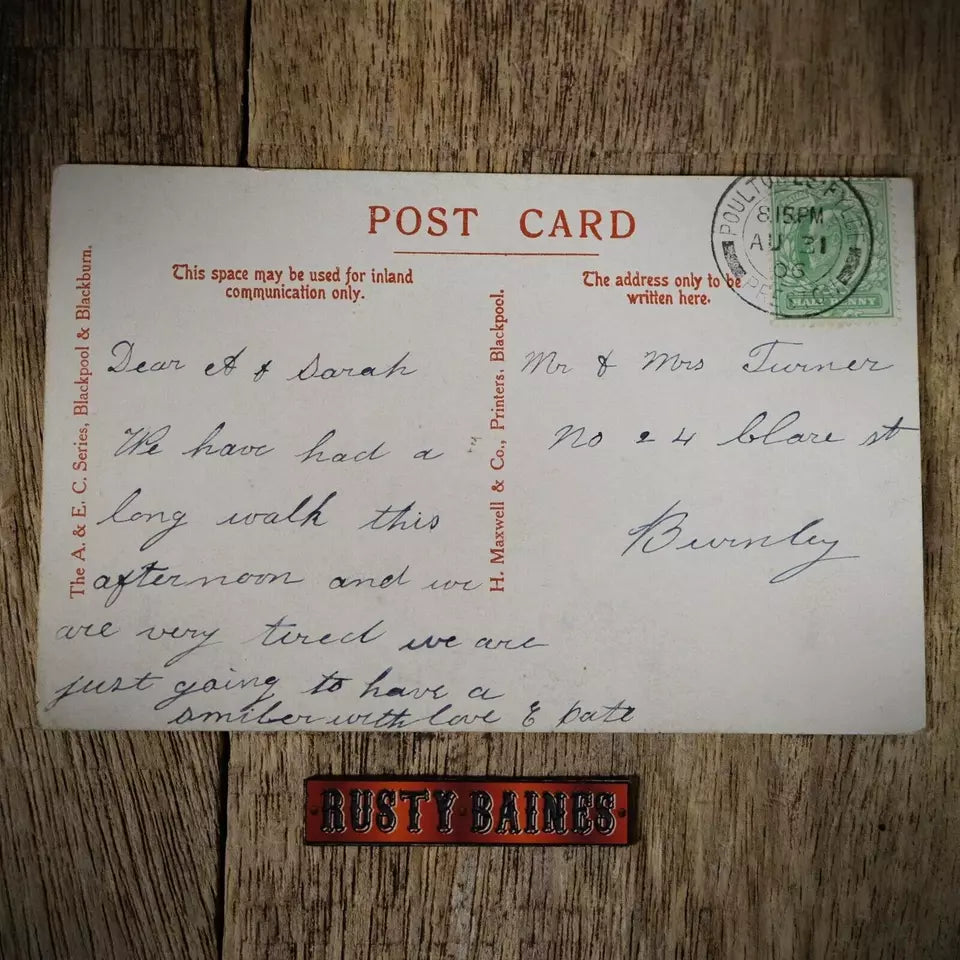 POST CARD
This space may be used for inland
communication only.
The address only to be
written here.
The A. & E. C. Series, Blackpool & Blackburn.
H. Maxwell & Co., Printers, Blackpool.
8.15PM
AU 31
06
HALF PENNY
Dear A & Sarah
We have had a
long walk this
afternoon and we
are very tired we are
just going to have a
with love E
Mr & Mrs Turner
No 24 Clare st
Burnley
RUSTY BAINES